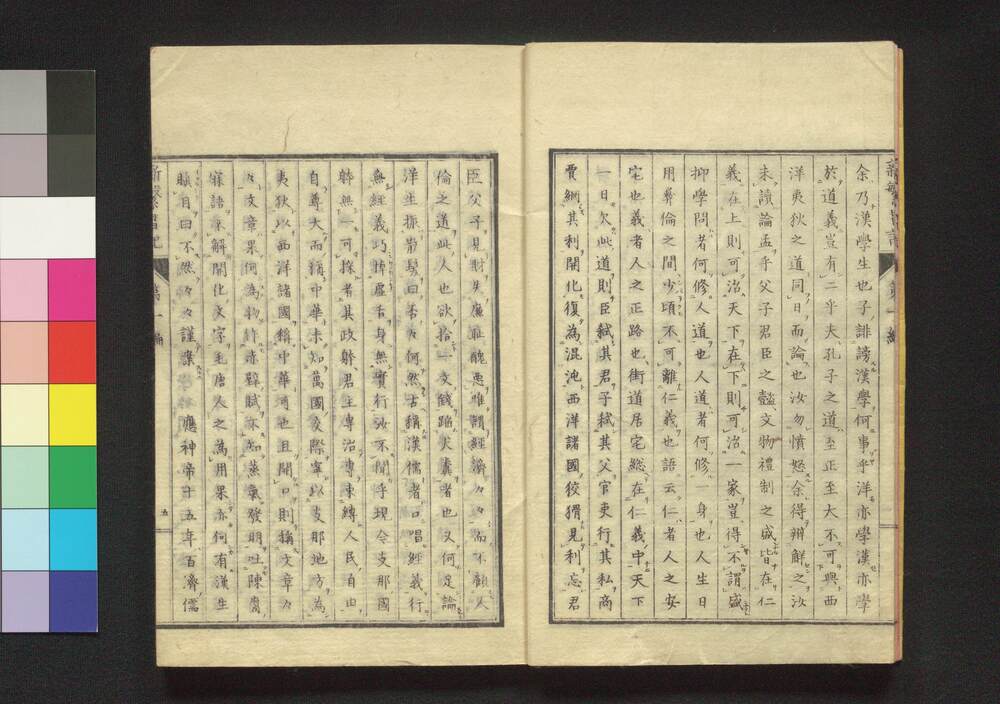 余乃漢學生也子誹謗漢學何事乎洋亦學漢亦學
於道義豈有二乎夫孔子之道至正至大不可與西
洋夷狄之道同日而論也汝勿憤怒余得辨解之汝
未讀論孟乎父子君臣之懿文物禮制之盛皆在仁
義在上則可治天下在下則可治一家豈得不謂盛
抑學問者何修人道也人道者何修一身也人生日
用彝倫之間少頃不可離仁義也語云仁者人之安
宅也義者人之正路也街道居宅總在仁義中天下
一日欠此道則臣弑其君子弑其父官吏行其私商
賣網其利開化復為混沌西洋諸國狡猾見利忘君
臣父子見財失廉耻醜惡唯謂經濟々々而不顧人
倫之道此人也欲拾一文錢踏犬糞者也又何足論
洋生振散髮曰否々何然古稱漢儒者口唱經義行
無經義巧悖虛舌身無實行汝不聞乎現今支那國
躰無一可採者其政躰君主專治專束縛人民自由
自尊大而稱中華未知萬國交際寧以支那地方為
夷狄以西洋諸國稱中華可也且開口則稱文章々
々文章果何為物許赤壁賦不知蒸氣發明吐陳腐
寐語未解開化文字毛唐人之為用果亦何有漢生
瞋目曰不然々々謹案 應神帝十五年百濟儒
第一編
五